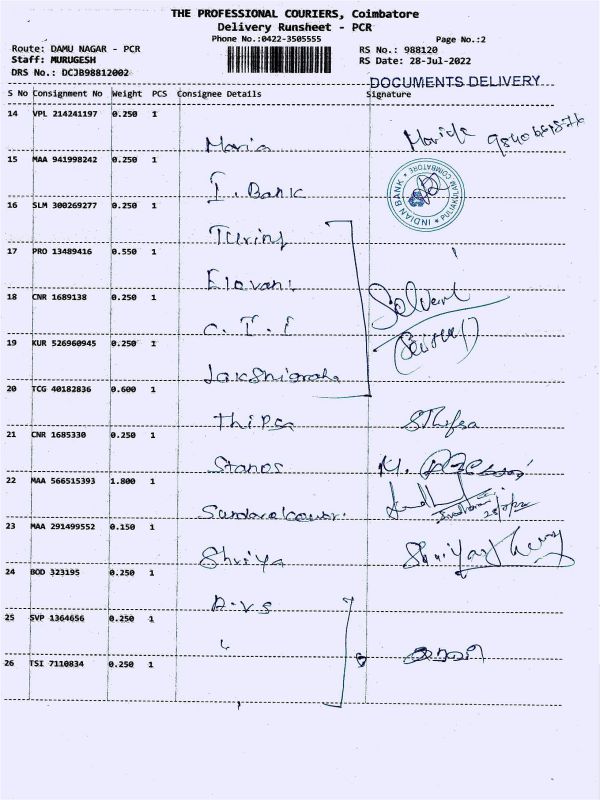 THE PROFESSIONAL COURIERS, Coimbatore
Delivery Runsheet - PCR
Phone No.:0422-3505555
Page No.:2
Route: DAMU NAGAR - PCR
RS No.: 988120
Staff: MURUGESH
RS Date: 28-Jul-2022
DRS No.: DCJB98812002
DOCUMENTS DELIVERY
S No Consignment No Weight PCS Consignee Details Signature
14 VPL 214241197 0.250 1
Maria
15 MAA 941998242 0.250 1
I. Bank
INDIAN BANK * PULIAKULAM COIMBATORE *
16 SLM 300269277 0.250 1
Turing
17 PRO 13489416 0.550 1
Elavani
18 CNR 1689138 0.250 1
C. I. I
Selvam
19 KUR 526960945 0.250 1
20 TCG 40182836 0.600 1
Thipsa
SThipsa
21 CNR 1685330 0.250 1
Stanes
M.
22 MAA 566515393 1.800 1
23 MAA 291499552 0.150 1
Shriya
24 BOD 323195 0.250 1
A.V.S
25 SVP 1364656 0.250 1
26 TSI 7110834 0.250 1